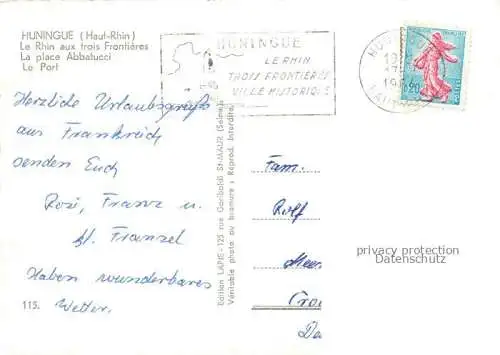 HUNINGUE (Haut-Rhin)
Le Rhin aux trois Frontières
La place Abbatucci
Le Port
HUNINGUE
LE RHIN
TROIS FRONTIÈRES
VILLE HISTORIQUE
0,20
Herzliche Urlaubsgrüße
aus Frankreich
senden Euch
Rosi, Franz u.
kl. Franzel
Haben wunderbares
Wetter.
115.
Edition LAPIE - 125 rue Garibaldi St-MAUR (Seine)
Véritable photo au bromure : Réprod. interdite
Fam.
Rolf
privacy protection
Datenschutz